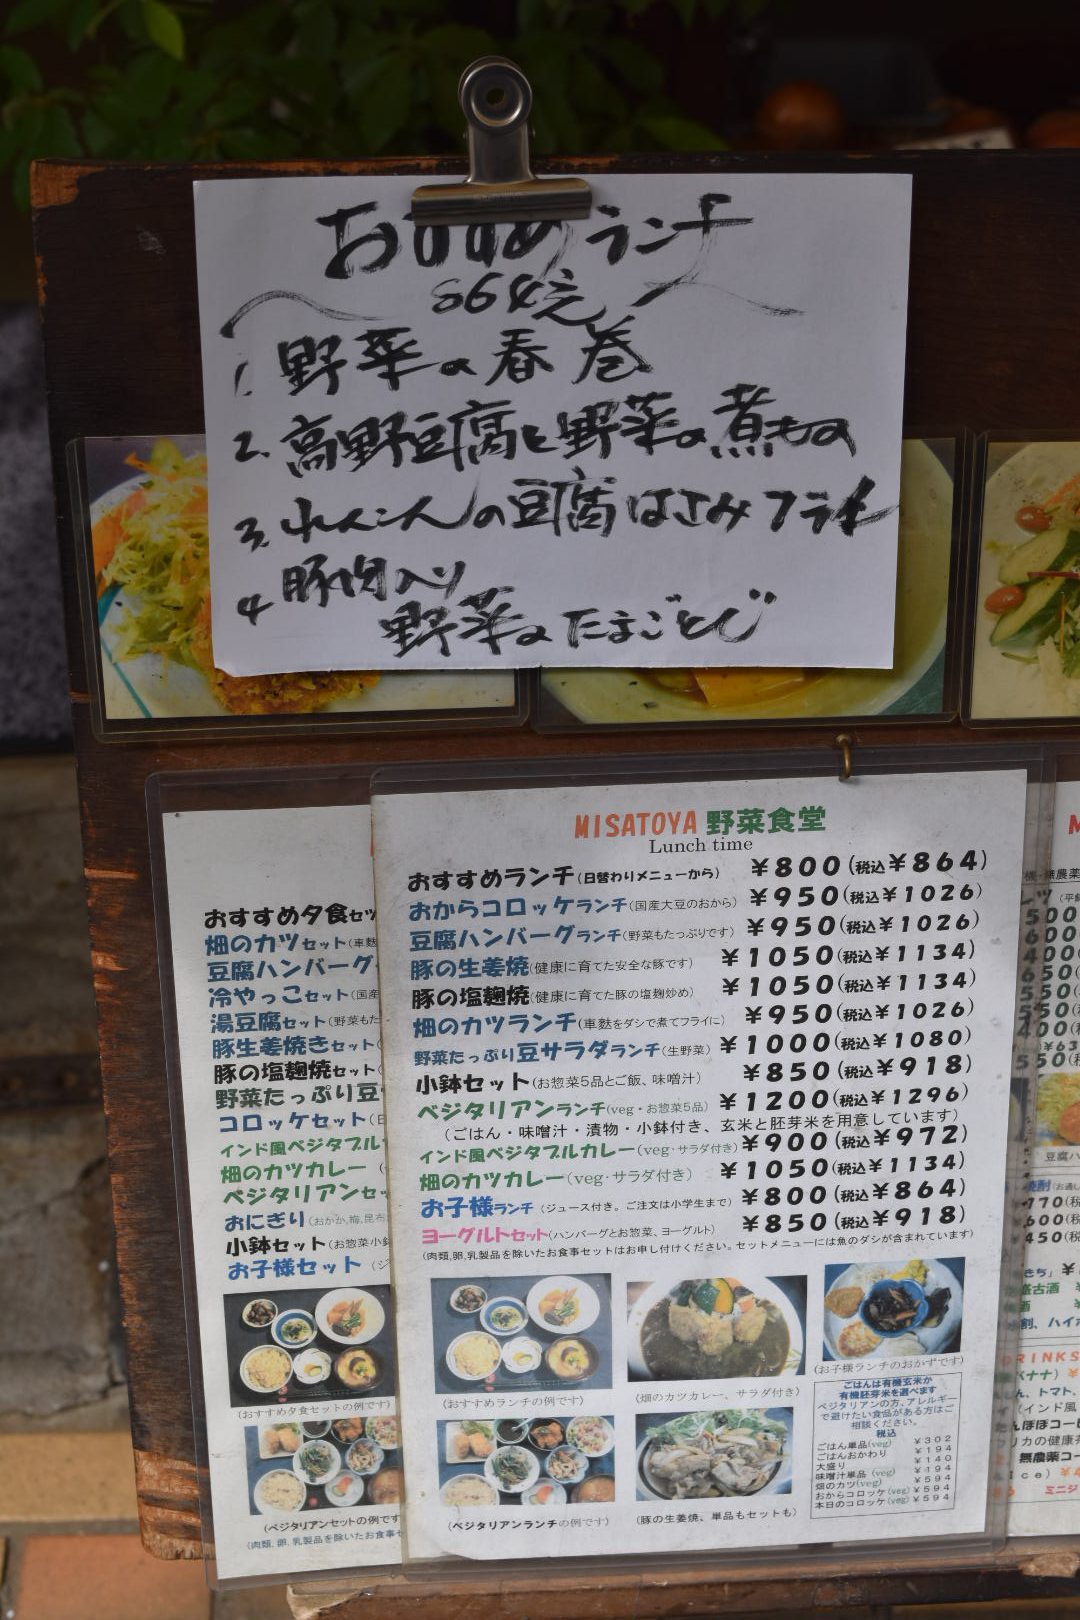 おすすめランチ
864元
1. 野菜の春巻
2. 高野豆腐と野菜の煮もの
3. れんこんの豆腐はさみフライ
4 豚肉入り
野菜のたまごとじ
MISATOYA 野菜食堂
Lunch time
おすすめランチ(日替わりメニューから) ¥800(税込¥864)
おからコロッケランチ(国産大豆のおから) ¥950(税込¥1026)
豆腐ハンバーグランチ(野菜もたっぷりです) ¥950(税込¥1026)
豚の生姜焼(健康に育てた安全な豚です) ¥1050(税込¥1134)
豚の塩麹焼(健康に育てた豚の塩麹炒め) ¥1050(税込¥1134)
畑のカツランチ(車麩をダシで煮てフライに) ¥950(税込¥1026)
野菜たっぷり豆サラダランチ(生野菜) ¥1000(税込¥1080)
小鉢セット(お惣菜5品とご飯、味噌汁) ¥850(税込¥918)
ベジタリアンランチ(veg・お惣菜5品) ¥1200(税込¥1296)
(ごはん・味噌汁・漬物・小鉢付き、玄米と胚芽米を用意しています)
インド風ベジタブルカレー(veg・サラダ付き) ¥900(税込¥972)
畑のカツカレー(veg・サラダ付き) ¥1050(税込¥1134)
お子様ランチ(ジュース付き。ご注文は小学生まで) ¥800(税込¥864)
ヨーグルトセット(ハンバーグとお惣菜、ヨーグルト) ¥850(税込¥918)
(肉類、卵、乳製品を除いたお食事セットはお申し付けください。セットメニューには魚のダシが含まれています)
(おすすめランチの例です)
(畑のカツカレー、サラダ付き)
(お子様ランチのおかずです)
(ベジタリアンランチの例です)
(豚の生姜焼、単品もセットも)
ごはんは有機玄米か
有機胚芽米を選べます
ベジタリアンの方、アレルギー
で避けたい食品がある方はご
相談ください。
税込
ごはん単品(veg) ¥302
ごはんおかわり ¥194
大盛り ¥140
味噌汁単品(veg) ¥194
畑のカツ(veg) ¥594
おからコロッケ(veg) ¥594
本日のコロッケ(veg) ¥594
おすすめ夕食セッ
畑のカツセット(車麩
豆腐ハンバーグ
冷やっこセット(国産
湯豆腐セット(野菜もた
豚生姜焼きセット(
豚の塩麹焼セット(
野菜たっぷり豆
コロッケセット(
インド風ベジタブル
畑のカツカレー(
ベジタリアンセッ
おにぎり(おかか,梅,昆布
小鉢セット(お惣菜小鉢
お子様セット(ジ
(おすすめ夕食セットの例です)
(ベジタリアンセットの例です
(肉類、卵、乳製品を除いたお食事セ